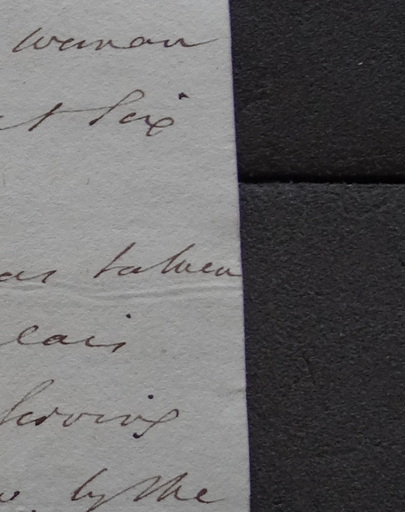 woman
t Six
as taken
serving
by the